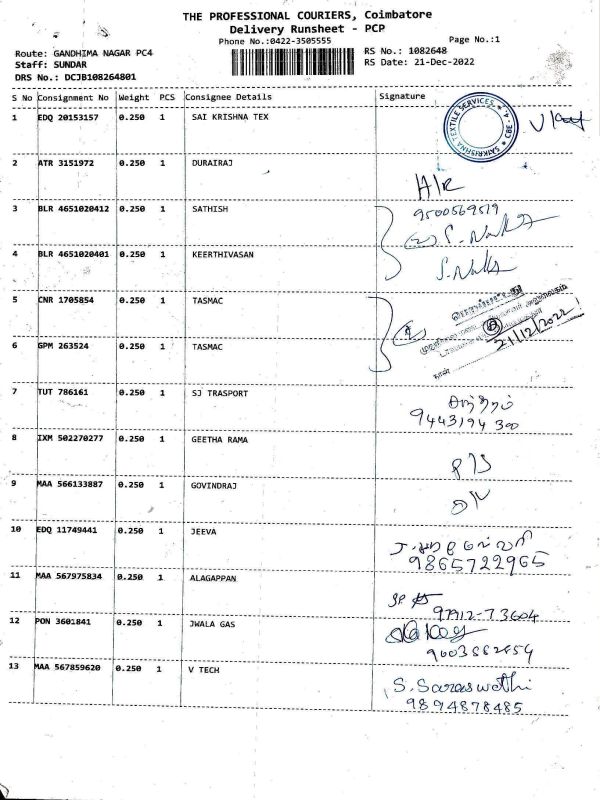 THE PROFESSIONAL COURIERS, Coimbatore
Delivery Runsheet - PCP
Phone No.:0422-3505555
Page No.:1
Route: GANDHIMA NAGAR PC4
RS No.: 1082648
Staff: SUNDAR
RS Date: 21-Dec-2022
DRS No.: DCJB108264801
S No Consignment No Weight PCS Consignee Details Signature
1 EDQ 20153157 0.250 1 SAI KRISHNA TEX
SAIKRISHNA TEXTILE SERVICES ★ CBE - 4. ★
2 ATR 3151972 0.250 1 DURAIRAJ
3 BLR 4651020412 0.250 1 SATHISH 9500569519
4 BLR 4651020401 0.250 1 KEERTHIVASAN
5 CNR 1705854 0.250 1 TASMAC
21/12/2022
6 GPM 263524 0.250 1 TASMAC
நாள்
7 TUT 786161 0.250 1 SJ TRASPORT
9443194 300
8 IXM 502270277 0.250 1 GEETHA RAMA
9 MAA 566133887 0.250 1 GOVINDRAJ
10 EDQ 11749441 0.250 1 JEEVA
9865722965
11 MAA 567975834 0.250 1 ALAGAPPAN
12 PON 3601841 0.250 1 JWALA GAS
13 MAA 567859620 0.250 1 V TECH
S. Saraswathi
9894878485